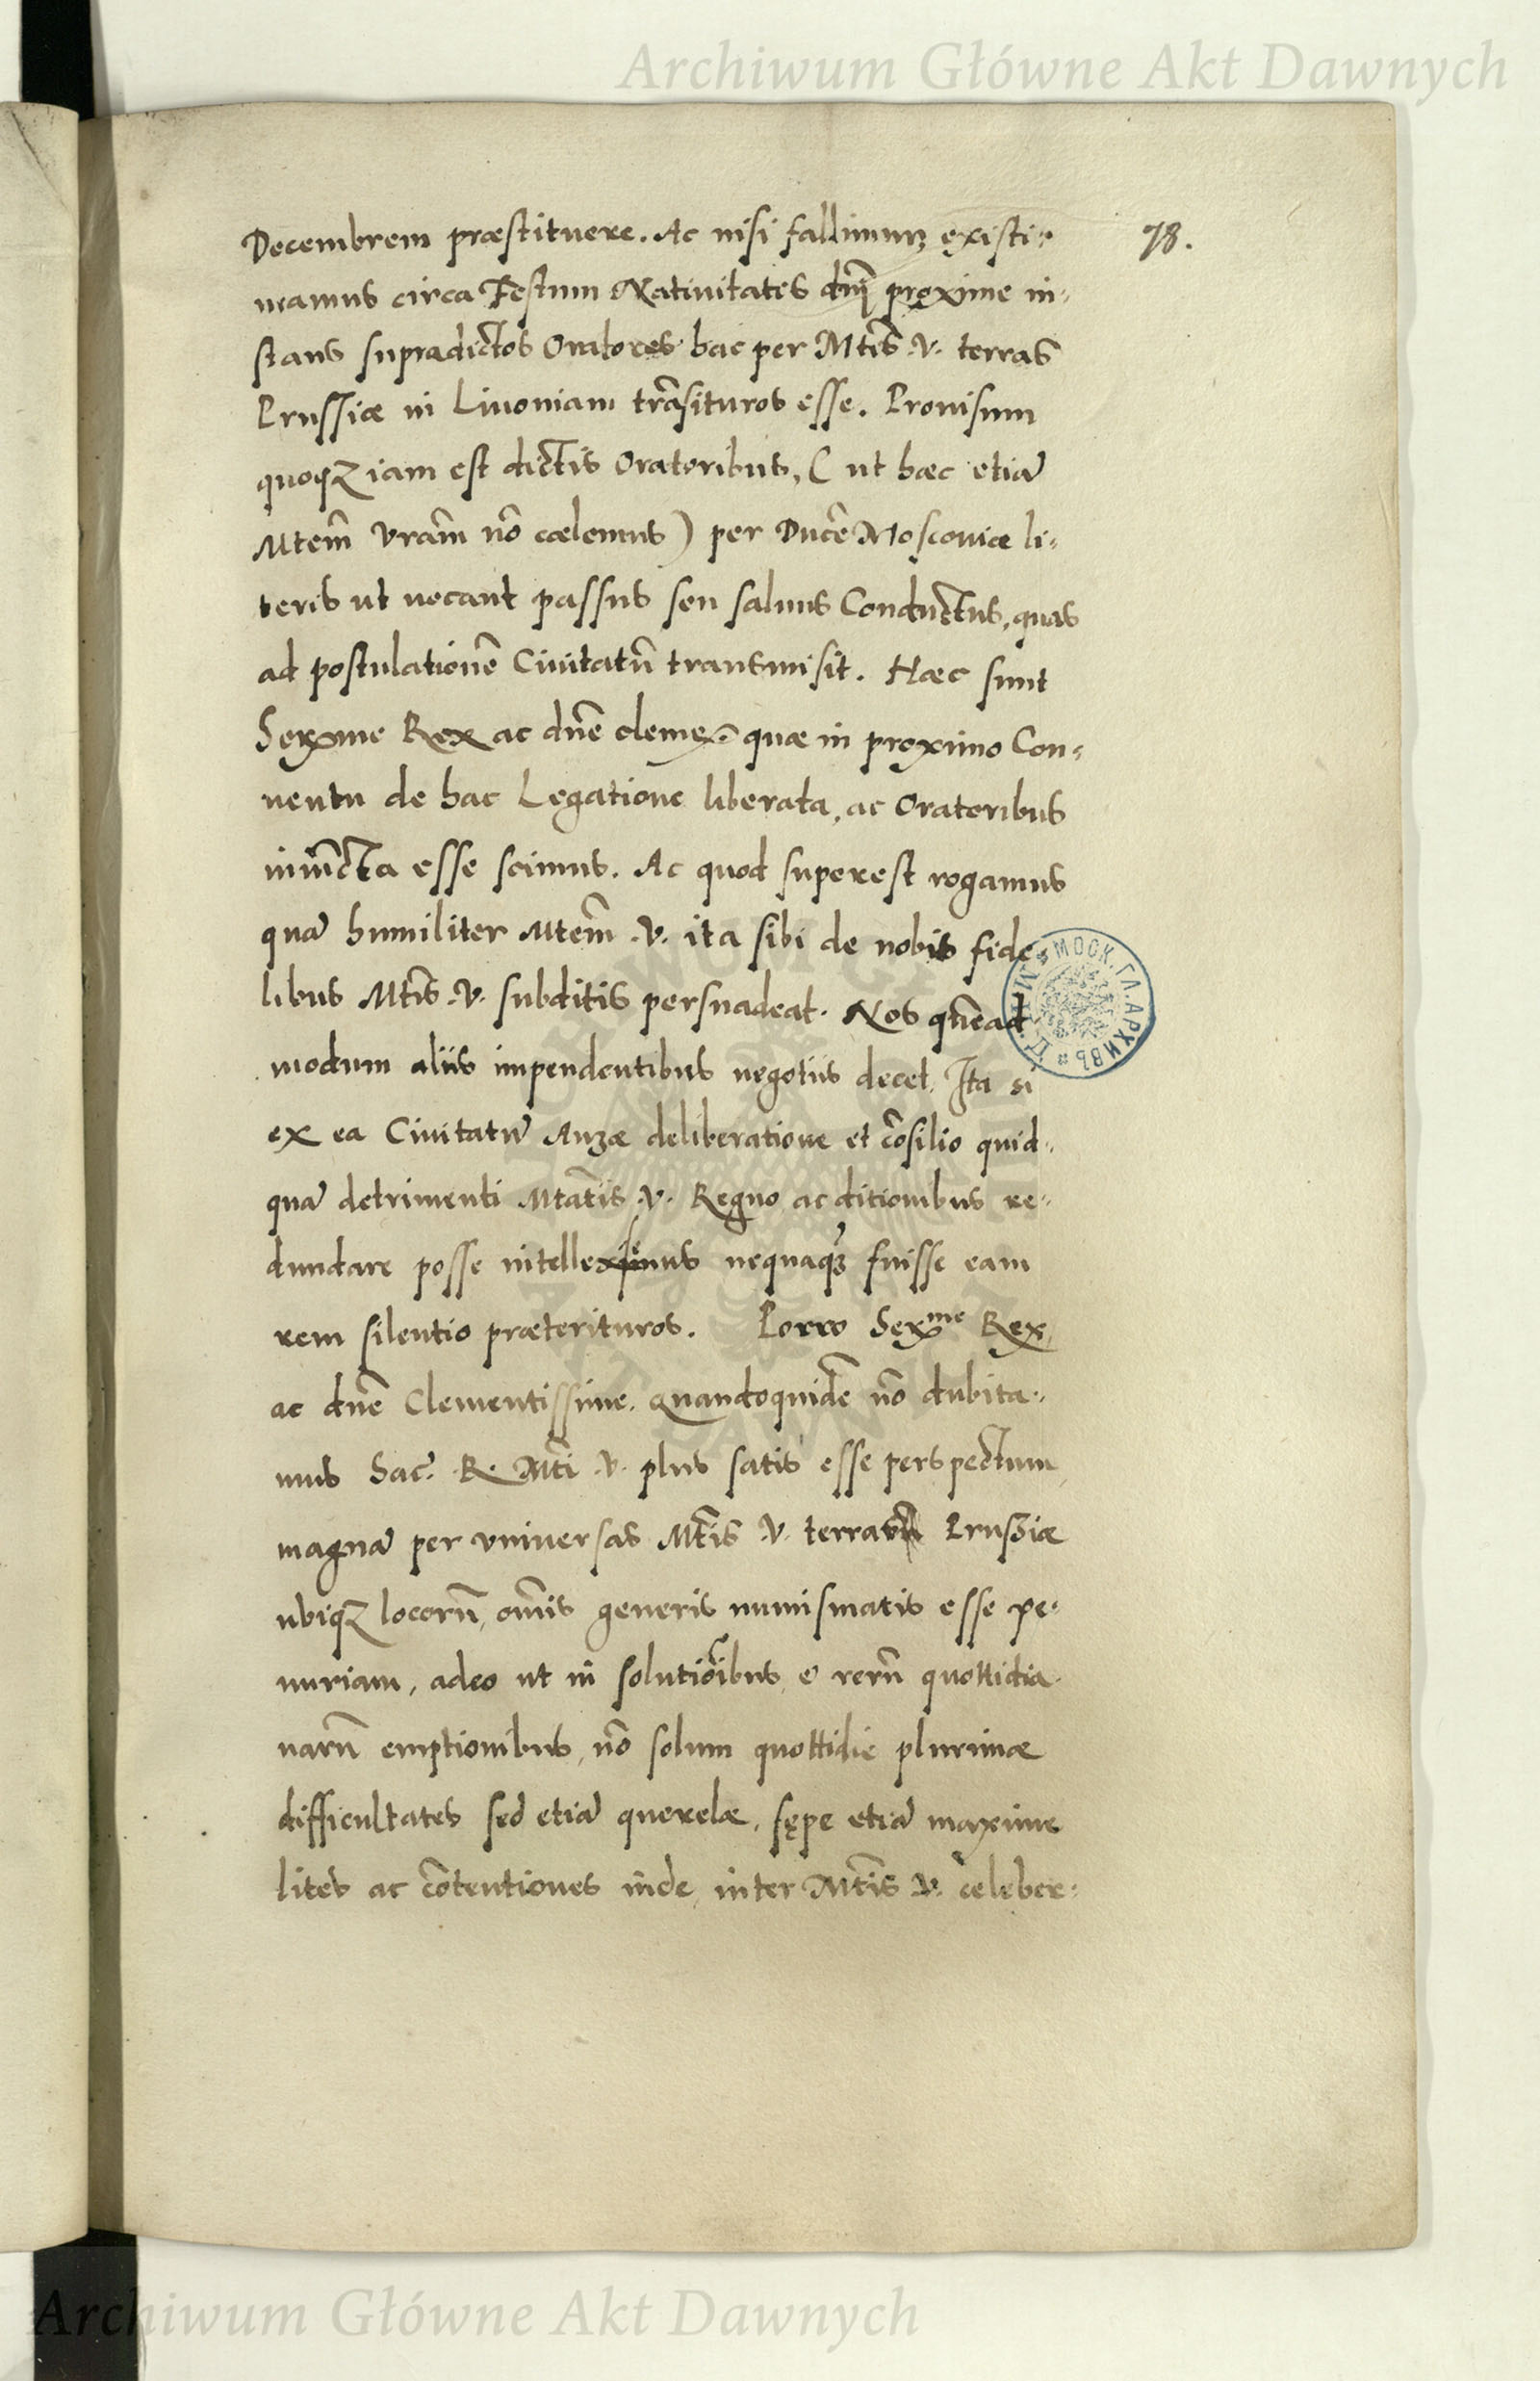 Archiwum Główne Akt Dawnych
78.
Decembrem præstituere. Ac nisi fallimur, existi-
mamus circa Festum Natiuitatis dnj proxime in-
stans supradictos Oratores hac per Mtis .V. terras
Prussiæ in Liuoniam trãsituros esse. Prouisum
quoqz iam est dictis Oratoribus, ( ut hæc etiã
Mtem̃ Vram̃ nõ cælemus ) per Ducẽ Moscouiæ li-
teris ut uocant passus seu saluus Conductus, quas
ad postulationẽ Ciuitatũ transmisit. Hæc sunt
Serme Rex ac dñe cleme. quæ in proximo Con-
uentu de hac Legatione liberata, ac Oratoribus
iniũcta esse scimus. Ac quod superest rogamus
quã humiliter Mtem̃ .V. ita sibi de nobis fide-
libus Mtis .V. subditis persuadeat. Nos quẽad
modum aliis impendentibus negotiis decet. Ita si
ex ea Ciuitatũ Anzæ deliberatione et cõsilio quid-
quã detrimenti Mtatis .V. Regno ac ditionibus re-
dundare posse intelleximus nequaqz fuisse eam
rem silentio præterituros. Porro Serme Rex,
ac dñe Clementissime. Quandoquidẽ nõ dubita-
mus Sac. R. Mti .V. plus satis esse perspectum
magnã per vniuersas Mtis .V. terras Prussiæ
ubiqz locorũ, om̃is generis numismatis esse pe-
nuriam, adeo ut in solutiõibus, e rerũ quottidia-
narũ emptionibus, nõ solum quottidie plurimæ
difficultates sed etiã querelæ, sępe etiã maxime
lites ac cõtentiones inde, inter Mtis .V. celeber-
МОСК. ГЛ. АРХИВЪ
Archiwum Główne Akt Dawnych